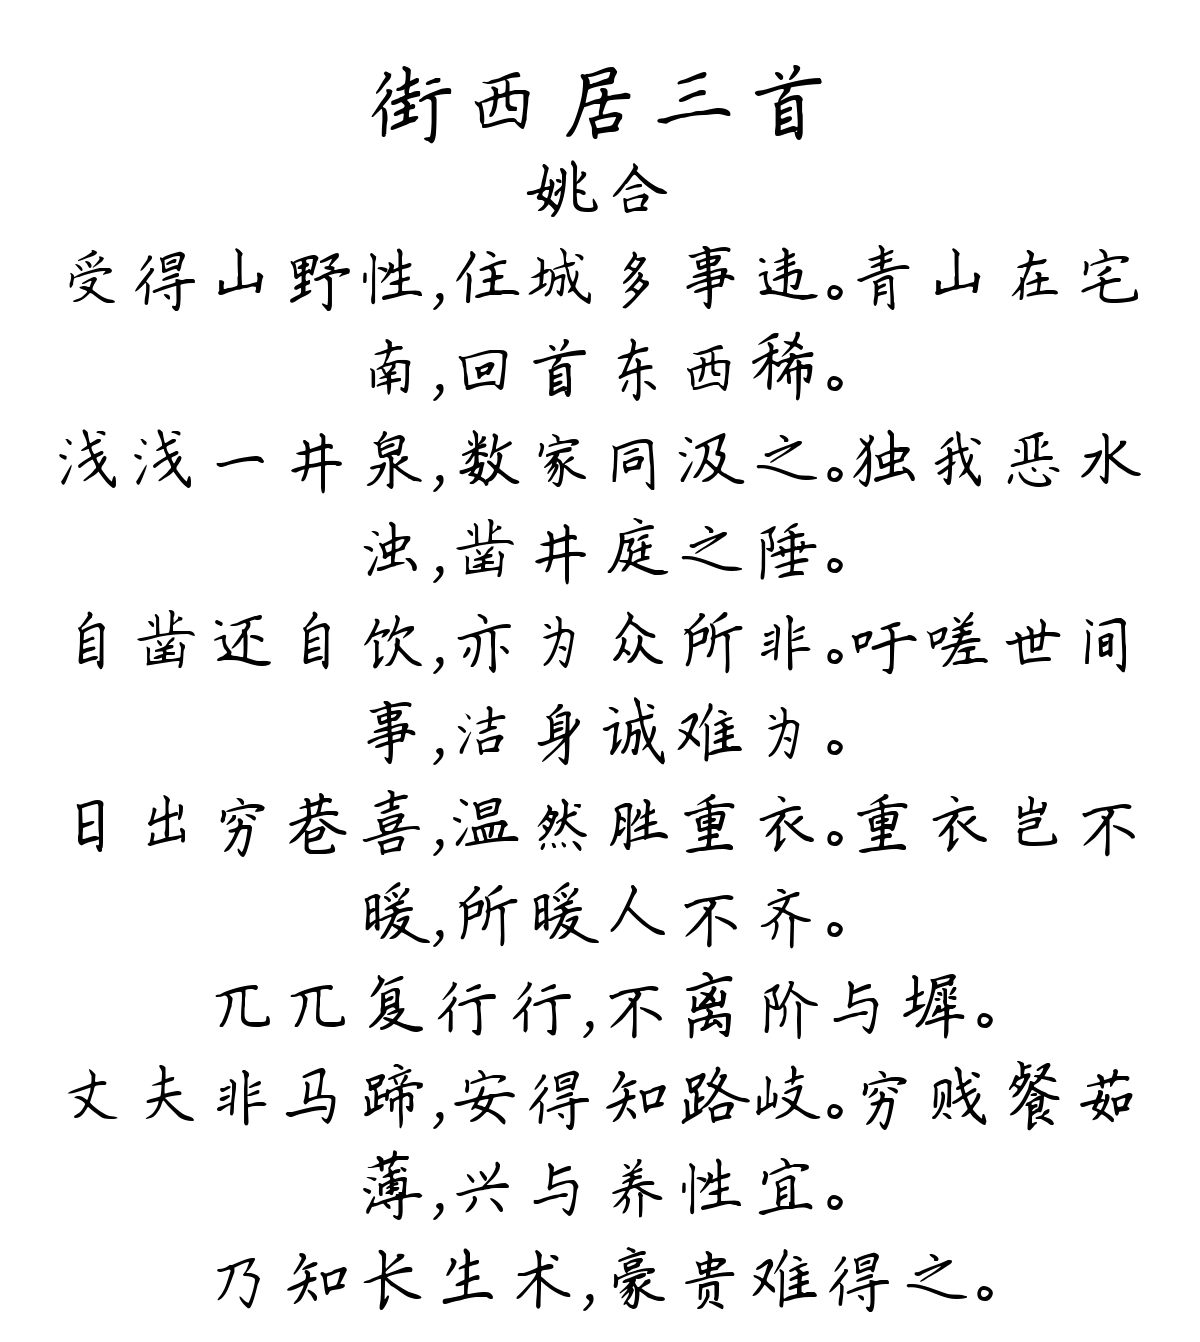 街西居三首
姚合
受得山野性,住城多事违。青山在宅
南,回首东西稀。
浅浅一井泉,数家同汲之。独我恶水
浊,凿井庭之陲。
自凿还自饮,亦为众所非。吁嗟世间
事,洁身诚难为。
日出穷巷喜,温然胜重衣。重衣岂不
暖,所暖人不齐。
兀兀复行行,不离阶与墀。
丈夫非马蹄,安得知路岐。穷贱餐茹
薄,兴与养性宜。
乃知长生术,豪贵难得之。